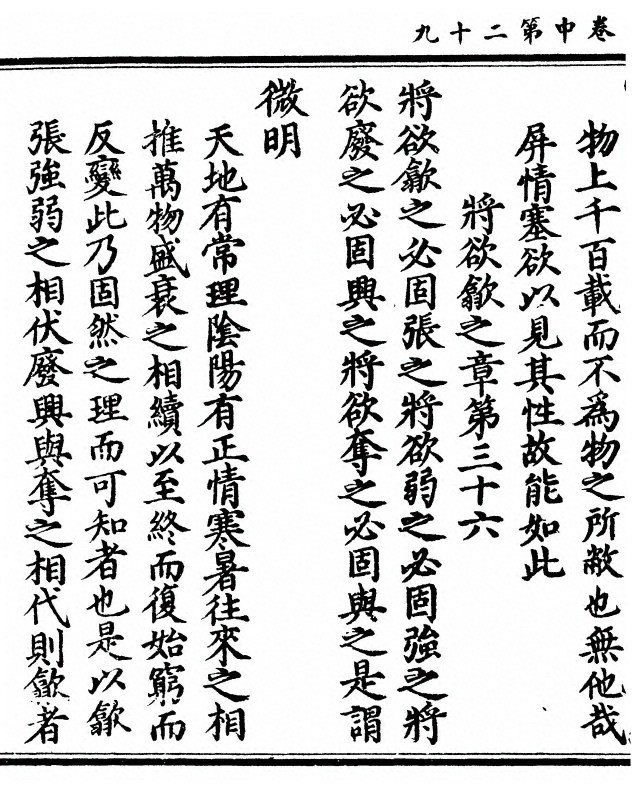 卷中第二十九
物上千百載而不爲物之所敝也無他哉
屏情塞欲以見其性故能如此
將欲歙之章第三十六
將欲歙之必固張之將欲弱之必固強之將
欲廢之必固興之將欲奪之必固與之是謂
微明
天地有常理陰陽有正情寒暑往來之相
推萬物盛衰之相續以至終而復始窮而
反變此乃固然之理而可知者也是以歙
張強弱之相伏廢興與奪之相代則歙者